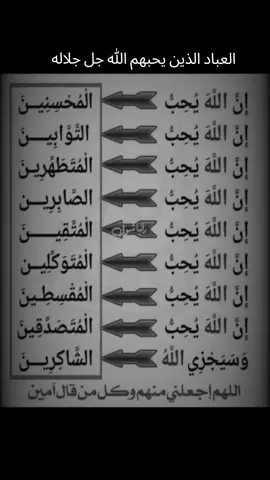 العباد الذين يحبهم الله جل جلاله
إِنَّ اللَّهَ يُحِبُّ الْمُحْسِنِينَ
إِنَّ اللَّهَ يُحِبُّ التَّوَّابِينَ
إِنَّ اللَّهَ يُحِبُّ الْمُتَطَهِّرِينَ
إِنَّ اللَّهَ يُحِبُّ الصَّابِرِينَ
إِنَّ اللَّهَ يُحِبُّ الْمُتَّقِينَ
إِنَّ اللَّهَ يُحِبُّ الْمُتَوَكِّلِينَ
إِنَّ اللَّهَ يُحِبُّ الْمُقْسِطِينَ
إِنَّ اللَّهَ يُحِبُّ الْمُتَصَدِّقِينَ
وَسَيَجْزِي اللَّهُ الشَّاكِرِينَ
اللهم إجعلني منهم وكل من قال آمين